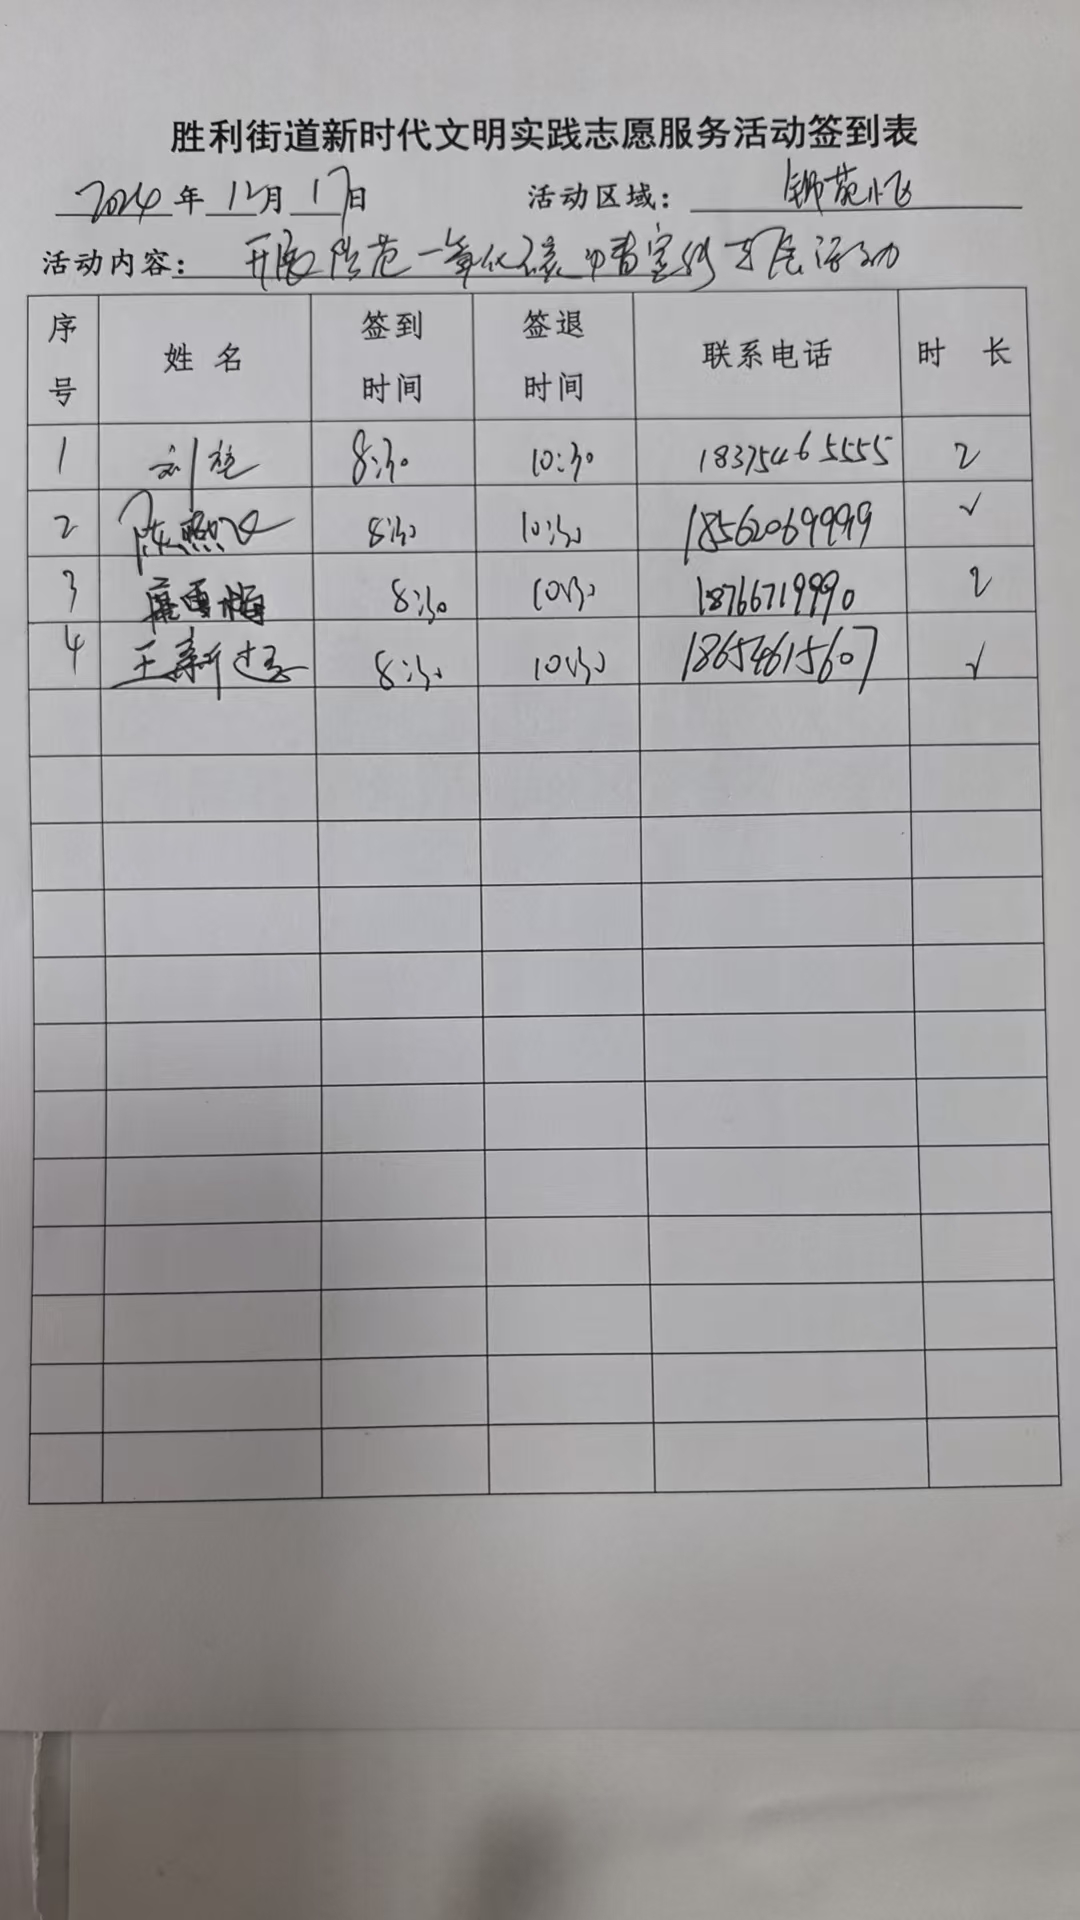 胜利街道新时代文明实践志愿服务活动签到表
2024年12月17日 活动区域：锦苑小区
活动内容：开展防范一氧化碳中毒宣传志愿活动
序号 姓名 签到时间 签退时间 联系电话 时长
1 刘 8:30 10:30 18375465555 2
2 陈熙 8:30 10:30 18562069999 √
3 雪梅 8:30 10:30 18766719990 2
4 王新 8:30 10:30 18654615607 √